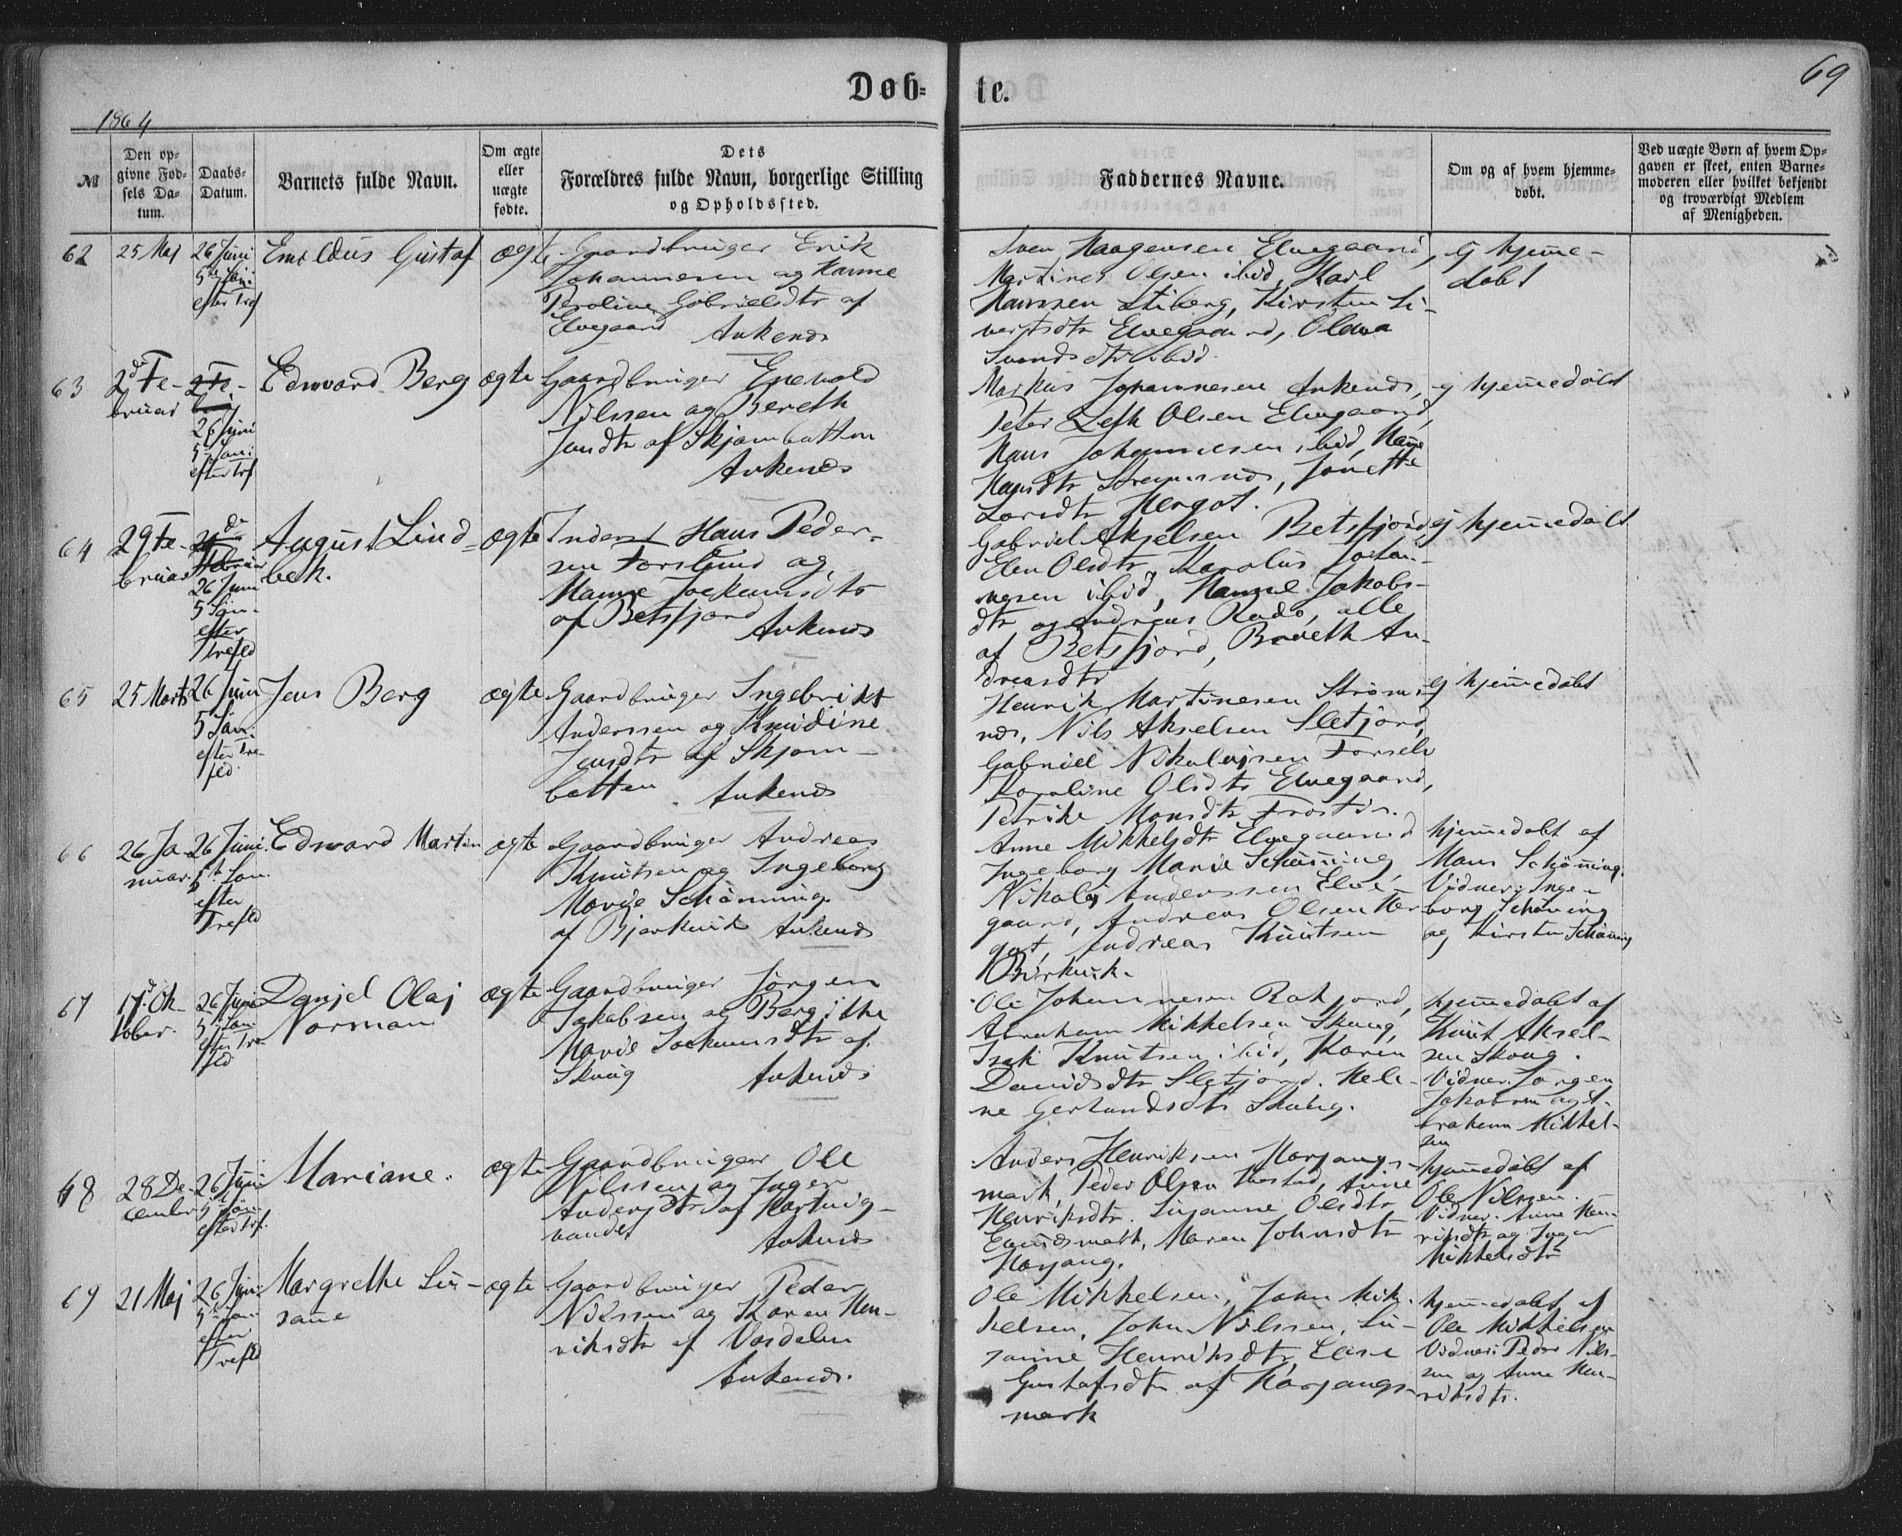 Døb-
te.
69
1864
№
Den op-
givne Fød-
sels Da-
tum.
Daabs-
Datum.
Barnets fulde Navn.
Om ægte
eller
uægte
fødte.
Dets
Forældres fulde Navn, borgerlige Stilling
og Opholdssted.
Faddernes Navne.
Om og af hvem hjemme-
døbt.
Ved uægte Børn af hvem Op-
gaven er skeet, enten Barne-
moderen eller hvilket bekjendt
og troværdigt Medlem
af Menigheden.
62
25 Maj
26 Juni
5te Søn:
efter Tref
Gustaf
ægte
Gaardbruger Erik
Johannesen og Hanne
Karoline Gabrielsdtr af
Elvegaard
Ankenæs
Sven Haagensen Elvegaard,
Martines Olsen ibid, Karl
Hanssen Stiberg, Kirsten Si-
vertsdtr Elvegaard, Olava
Svendsdtr ibid.
ej hjemme-
døbt
63
2d Fe-
bruar
26 Juni
5 Søn:
efter Trf
Edward Berg
ægte
Gaardbruger Enevold
Nilssen og Bereth
Jensdtr af Skjombotten
Ankenæs
Markus Johannesen Ankenæs,
Peter Leth Olsen Elvegaard,
Hans Johannesen ibid, Hanne
Hansdtr Strømsnæs, Jonette
Larsdtr Hergot.
ej hjemmedøbt
64
29 Fe-
bruar
26 Juni
5 Søn-
efter
Trefld
August Lind-
bek.
ægte
Inderst Hans Peder-
sen Forslund og
Hanne Jockumsdtr
af Beisfjord
Ankenæs
Gabriel Akselsen Beisfjord,
Elen Olsdtr, Karolus Johan-
nesen ibid, Hanne Jakobs-
dtr og Andreas Radø, alle
af Beisfjord, Bereth An-
dreasdtr
ej hjemmedøbt
65
25 Marts
26 Juni
5 Søn:
efter Tre-
fld.
Jens Berg
ægte
Gaardbruger Ingebrikt
Anderssen og Knudine
Jensdtr af Skjom-
botten
Ankenæs
Henrik Martinesen Strøms-
næs, Nils Akselsen Sletjord,
Gabriel Nikolajsen Forselv
Karoline Olsdtr Elvegaard,
Petrike Monsdtr
ej hjemmedøbt
66
26 Ja-
nuar
26 Juni.
5te Søn
efter
Trefld
Edward Martin
ægte
Gaardbruger Andreas
Knutsen og Ingeborg
Marie Schønning
af Bjerkvik Ankenæs
Anne Mikkelsdtr Elvegaard
Ingeborg Marie Schønning,
Nikolaj Anderssen Elve-
gaard, Andreas Olsen Her-
got, Andreas Knutsen
Birkvik.
hjemmedøbt af
Hans Schønning.
Vidner: Inge-
borg Schøning
og Kirsten Schøning
67
17d Ok-
tober.
26 Juni
5te Søn
efter Tre
fld
Danjel Olaj
Norman
ægte
Gaardbruger Jørgen
Jakobsen og Bergithe
Marie Jockumsdtr af
Skoug
Ankenæs
Ole Johannesen
Abraham Mikkelsen Skoug,
Isak Knutsen ibid, Karen
Davidsdtr Sletjord. Hele-
ne Gerhardsdtr Skoug.
hjemmedøbt af
Knut Aksel-
sen Skoug.
Vidner: Jørgen
Jakobsen og A-
braham Mikkel-
sen
68
28 De-
cember
26 Juni
5te Søn
efter Trf.
Mariane.
ægte
Gaardbruger Ole
Nilssen og Inger
Andersdtr af Hartvig-
vandet
Ankenæs
Anders Henriksen Herjangs-
mark, Peder Olsen Anne
Henriksdtr. Susanne Olsdtr
Maren Johnsdtr
Herjang.
hjemmedøbt af
Ole Nilssen.
Vidner: Anne Hen-
riksdtr og Inger
Mikkelsdtr
69
21 Maj
26 Juni
5te Søn
efter
Trefld
Margrethe Su-
sanne
ægte
Gaardbruger Peder
Nilssen og Karen Hen-
riksdtr af Vasdalen
Ankenæs.
Ole Mikkelsen, John Mik-
kelsen, John Nilssen, Su-
sanne Henriksdtr, Elise
Gustafsdtr af Herjangs-
mark
hjemmedøbt af
Ole Mikkelsen
Vidner: Peder Nils-
sen og Anne Hen-
riksdtr.